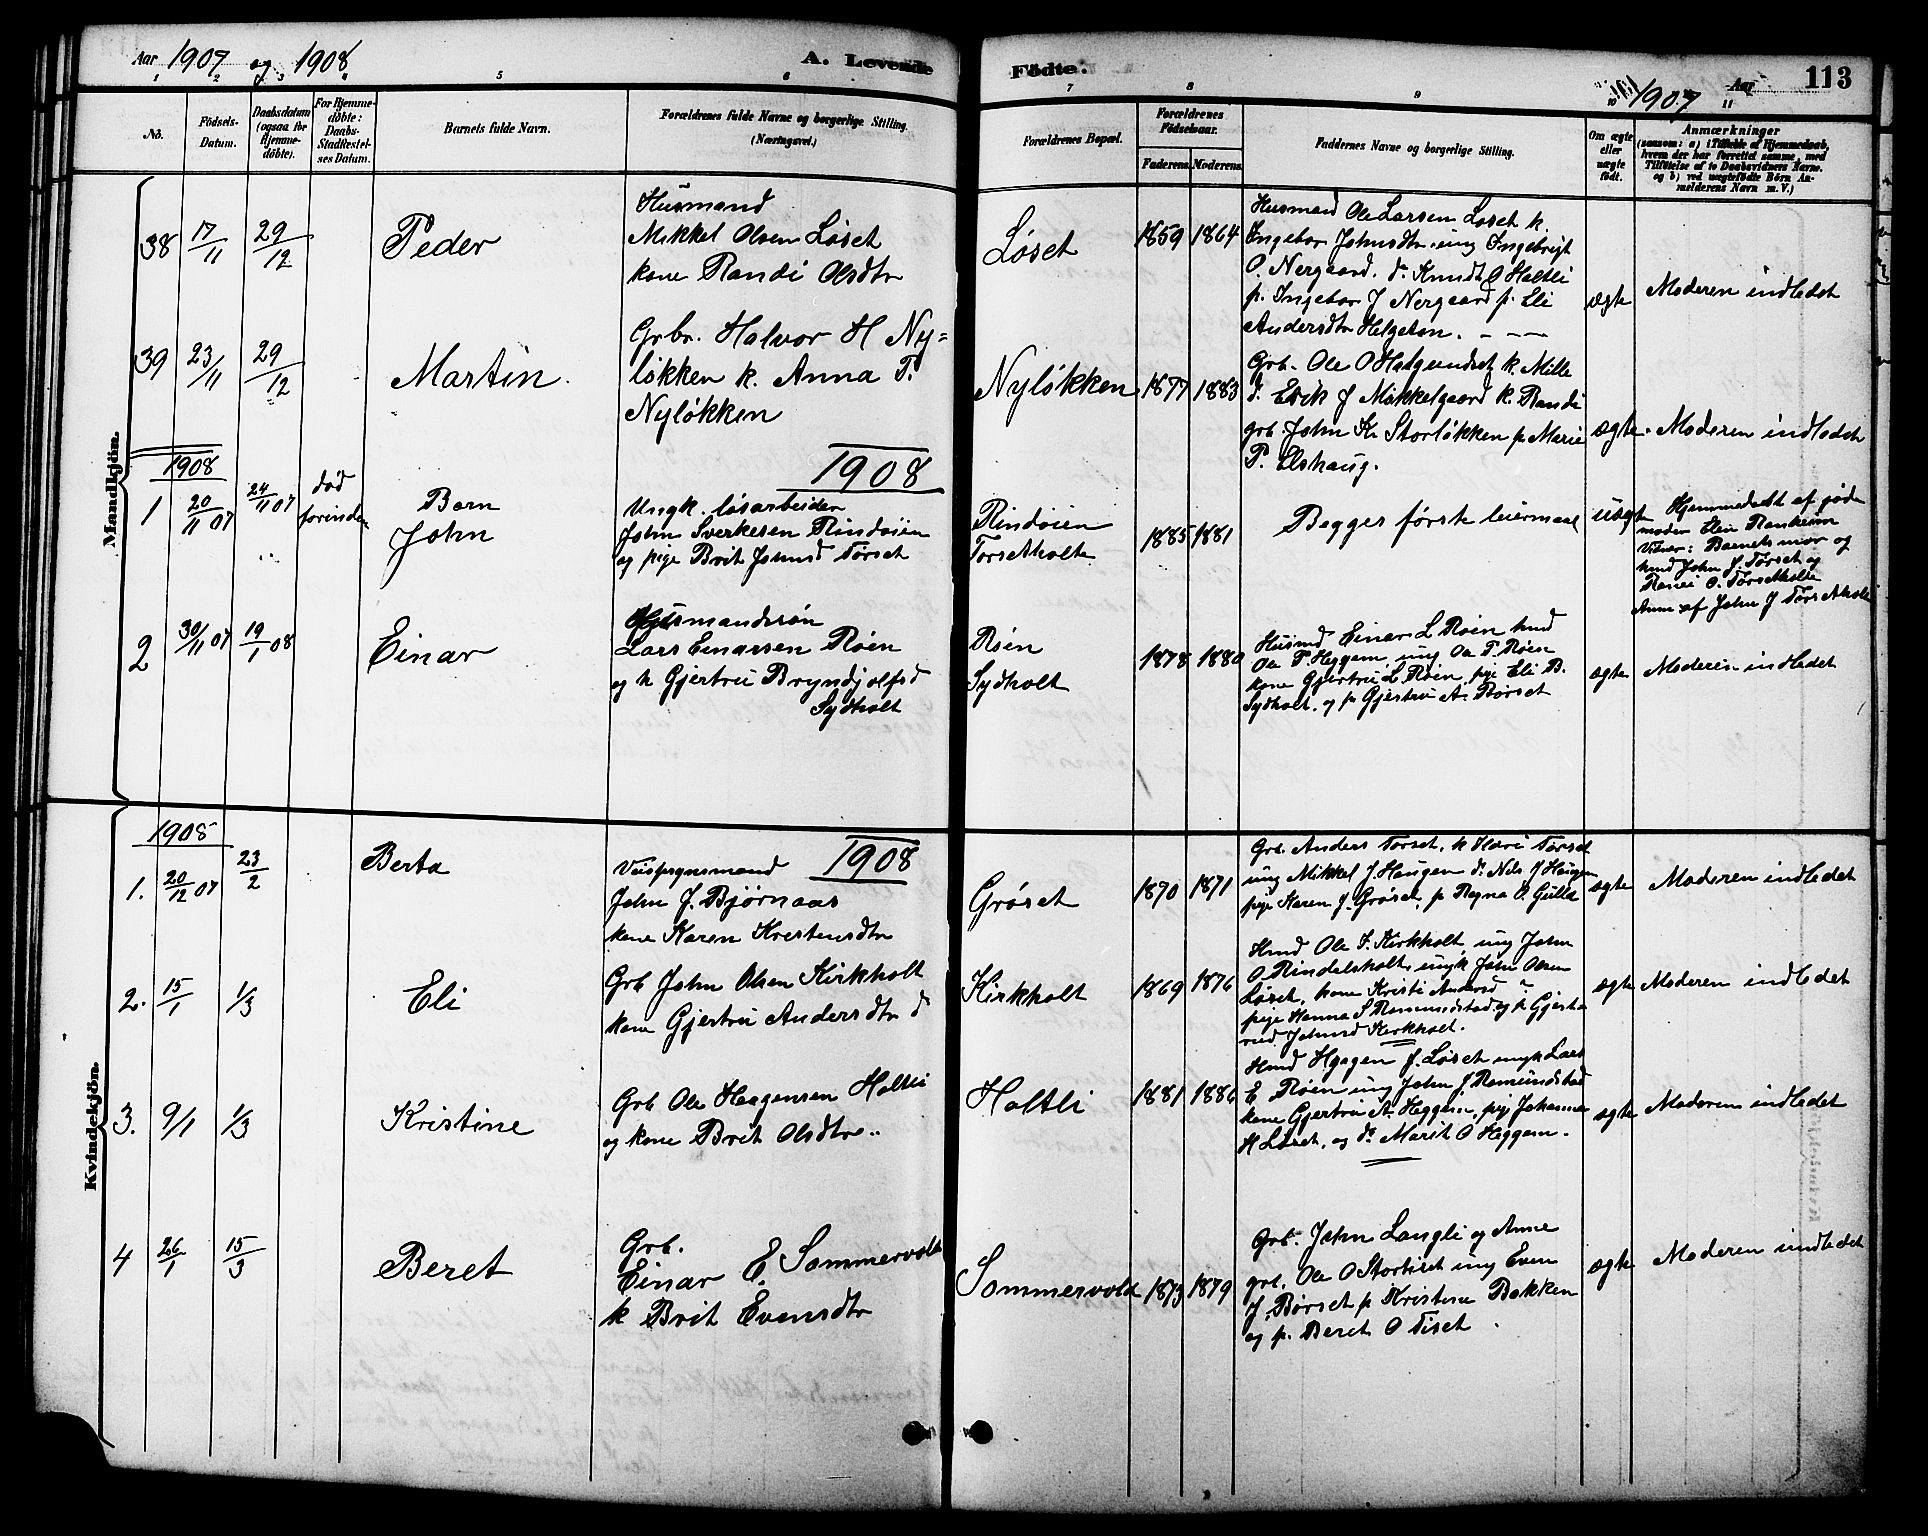 Aar 1907 og 1908
A. Levende Födte.
1907 Aar
113
1 2 3 4 5 6 7 8 9 10 11
No.
Födsels-Datum.
Daabsdatum (ogsaa for Hjemme-döbte).
For Hjemme-döbte: Daabs-Stadfæstel-ses Datum.
Barnets fulde Navn.
Forældrenes fulde Navne og borgerlige Stilling.
(Næringsvei.)
Forældrenes Bopæl.
Forældrenes Födselsaar.
Faderens. Moderens.
Faddernes Navne og borgerlige Stilling.
Om ægte eller uægte födt.
Anmærkninger
(saasom: a) i Tilfælde af Hjemmedaab,
hvem der har forrettet samme, med
Tilföielse af to Daabsvidners Navne.
og b) ved uægtefödte Börn An-
melderens Navn m. V.)
Mandkjön.
38 17/11 29/12 Peder
Husmand
Mikkel Olsen Løset
kone Randi Olsdtr
Løset 1859 1864
Husmand Ole Larsen Løset k.
Ingebor Johnsdtr. ung Ingebrigt
O. Nergaard. do Knudt O Holtli
p. Ingebor J Nergaard p. Eli
Andersdtr Helgeton. - - -
ægte Moderen indledet
39 23/11 29/12 Martin.
Grbr. Halvor H Ny=
løkken k. Anna T.
Nyløkken
Nyløkken 1877 1883
Grb. Ole O k. Mille
d. Erik J Mikkelgaard k. Randi
grb. John Kr Storløkken p Marie
P. Elshaug.
ægte. Moderen indledet
1908
1908
1 20/11 07 24/11 07 død forinden
Barn
John
Ungk. løsarbeider
John Sverkesen Rindøien
og pige Brit Johnsd Tørset
Rindøien
Torsetholte
1885 1881
Begges første leiermaal
uægte
Hjemmedøbt af jorde
moder Elen Ranheim
Vidner: Barnets mor og
hmd John J. Tørset og
O. Tørsetholte
Anm. af John J Tørsetholte
2 30/11 07 19/1 08 Einar
Husmandssøn
Lars Einarsen Røen
og k Gjertru Bryndjolfsd
Sydholt
Røen
Sydholt
1878 1880
Husmd Einar L Røen hmd
Ole T. Heggem, ung Ole T. Røen
kone Gjertru L Røen, pige Eli B.
Sydholt. og p. Gjertru A. Børset
ægte Moderen indledet
Kvindekjön.
1908
1908
1. 20/12 07 23/2 Berta
Veivogtermand
John J. Bjørnaas
kone Karen Kristensdtr
Grøset 1870 1871
Grb. Anders Torset, k Torset
ung Mikkel J Haugen do Nils J Haugen
pige Karen J. Grøset, p Ragna O. Gulla
ægte Moderen indledet
2. 15/1 1/3 Eli
Grb John Olsen Kirkholt
kone Gjertru Andersdtr d
Kirkholt 1869 1876
Hmd Ole J. Kirkholt, ung John
O Rindelsholt, ungk John Olsen
Løset, kone Kristi Andersd
pige Hanna S Romundstad, og p Gjerta
rud Johnsd Kirkholt.
ægte Moderen indledet
3. 9/1 1/3 Kristine
Grb Ole Haagensen Holtli
og kone Brit Olsdtr..
Holtli 1881 1886
Hmd Hgagen J. Løset ungk Lars
E Røen ung John J Romundstad
kone Gjertru A. Heggem, pige Johanna
H Løset, og do Marit O Heggem.
ægte Moderen indledet
4 26/1 15/3 Beret
Grb.
Einar E. Sommervold
k Brit Evensdtr
Sommervold 1873 1879
Grb. John Langli og Anne
grb. Ole O Storliset ung Even
J. Børset p Kristine Bakken
og p. Beret O Tiset.
ægte Moderen indledet